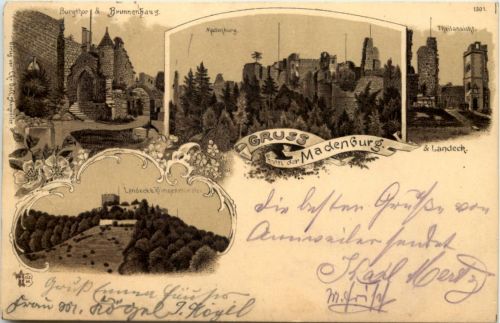 Burgthor & Brunnenhaus.
Madenburg.
Theilansicht.
1301.
GRUSS
von der Madenburg
& Landeck.
Landeck b. Klingenmünster.
die besten Grüße von
Annweiler sendet
Karl
Gruß
Frau M. Kögel J. Kögel